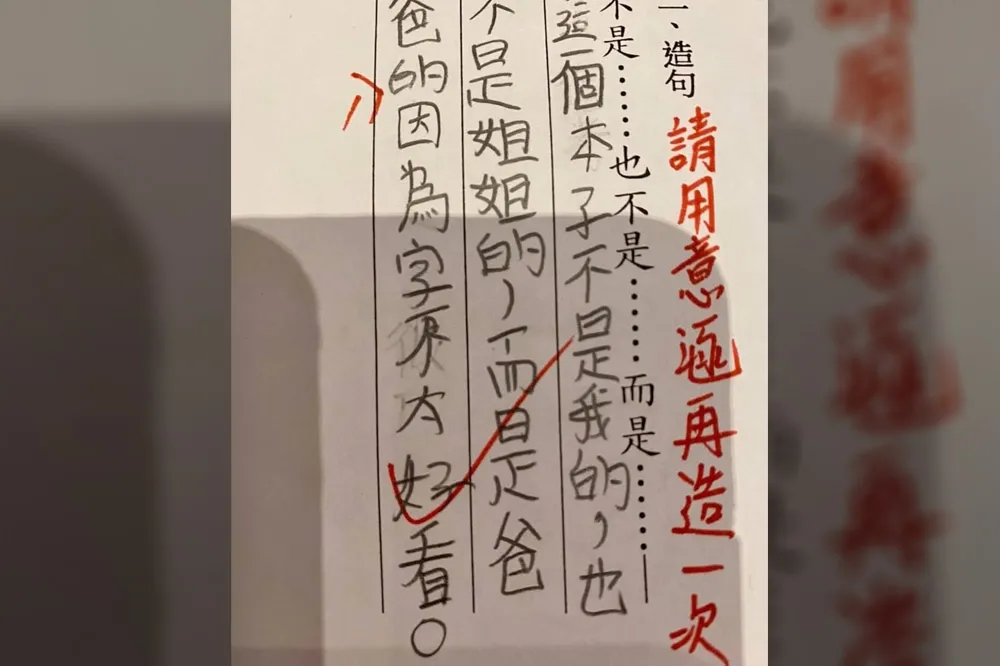 一、造句
請用意涵再造一次
不是……也不是……而是……
這個本子不是我的，也
不是姐姐的，而是爸
爸的因為字太好看。